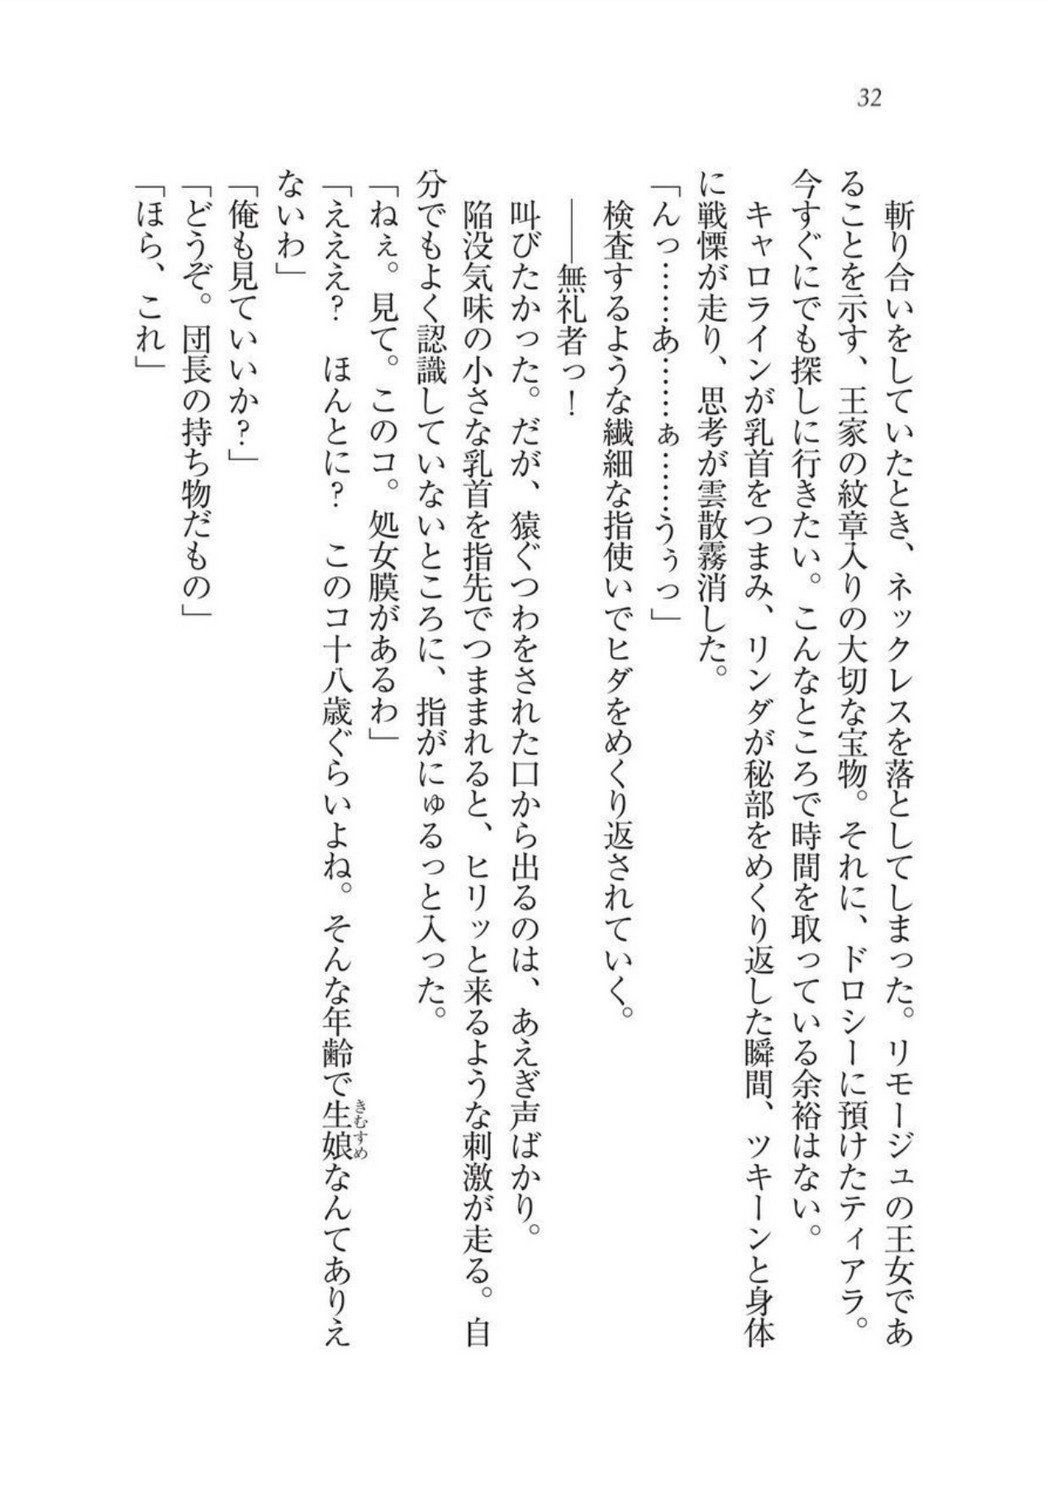 32
斬り合いをしていたとき、ネックレスを落としてしまった。リモージュの王女であ
ることを示す、王家の紋章入りの大切な宝物。それに、ドロシーに預けたティアラ。
今すぐにでも探しに行きたい。こんなところで時間を取っている余裕はない。
キャロラインが乳首をつまみ、リンダが秘部をめくり返した瞬間、ツキーンと身体
に戦慄が走り、思考が雲散霧消した。
「んっ……あ……ぁ……うぅっ」
検査するような繊細な指使いでヒダをめくり返されていく。
――無礼者っ！
叫びたかった。だが、猿ぐつわをされた口から出るのは、あえぎ声ばかり。
陥没気味の小さな乳首を指先でつままれると、ヒリッと来るような刺激が走る。自
分でもよく認識していないところに、指がにゅるっと入った。
「ねぇ。見て。このコ。処女膜があるわ」
「えええ？　ほんとに？　このコ十八歳ぐらいよね。そんな年齢で生娘なんてありえ
きむすめ
ないわ」
「俺も見ていいか？」
「どうぞ。団長の持ち物だもの」
「ほら、これ」